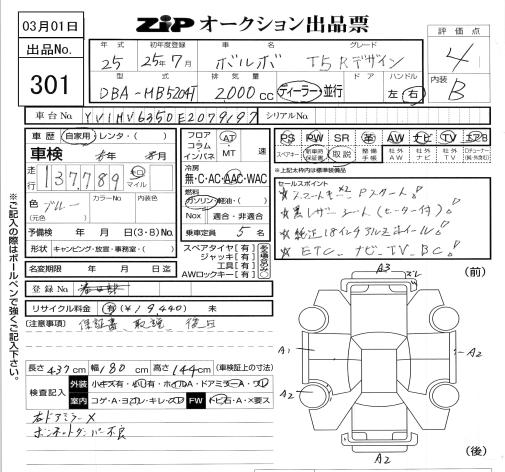 03月01日
ZIP オークション出品票
出品No.
301
年式 初年度登録 車名 グレード
25 25年7月 ボルボ T5 Rデザイン
型式 排気量 ドア ハンドル
DBA-MB5204T 2000cc ディーラー・並行 左 右
評価点
4
内装
B
車台No. YV1MV6350E2079197 シリアルNo.
車歴 自家用・レンタ・( )
車検 年 月
走行 137,789 km マイル
色 ブルー カラーNo. 内装色
(元色)
予備検 年 月 日(3・8)No.
形状 キャンピング・放送・事務室・( )
名変期限 年 月 日迄
登録No.
フロア コラム インパネ AT・MT 速
冷房
無・C・AC・AAC・WAC
燃料
ガソリン・軽油・( )
Nox 適合・非適合
乗車定員 5名
スペアタイヤ【有】
ジャッキ【有】
工具【有】
AWロックキー【有】
PS PW SR 革 AW ナビ TV エアB
スペアキー 新車時保証書 取説 整備手帳 社外AW 社外ナビ 社外TV
※上記太枠内は標準装備品
セールスポイント
☆スマートキー×2 Pスタート!
☆黒レザーシート(ヒーター付)!
☆純正18インチアルミホイール!
☆ETC ナビ TV BC!
リサイクル料金 有(¥19,440) 未
(注意事項) 保証書 取説 後日
長さ437cm 幅180cm 高さ144cm (車検証上の寸法)
検査記入 外装 小キズ有・小凹有・ホイルA・ドアミラーA・ワレ
室内 コゲ・A・ヨゴレ・キレ・スレ FW トビ石・A・×要ス
右ドアミラー×
ボンネットダンパー不良
※ご記入の際はボールペンで強くご記入下さい。
(前)
A3 スレ
A1 A2
A2 A2
A2
(後)